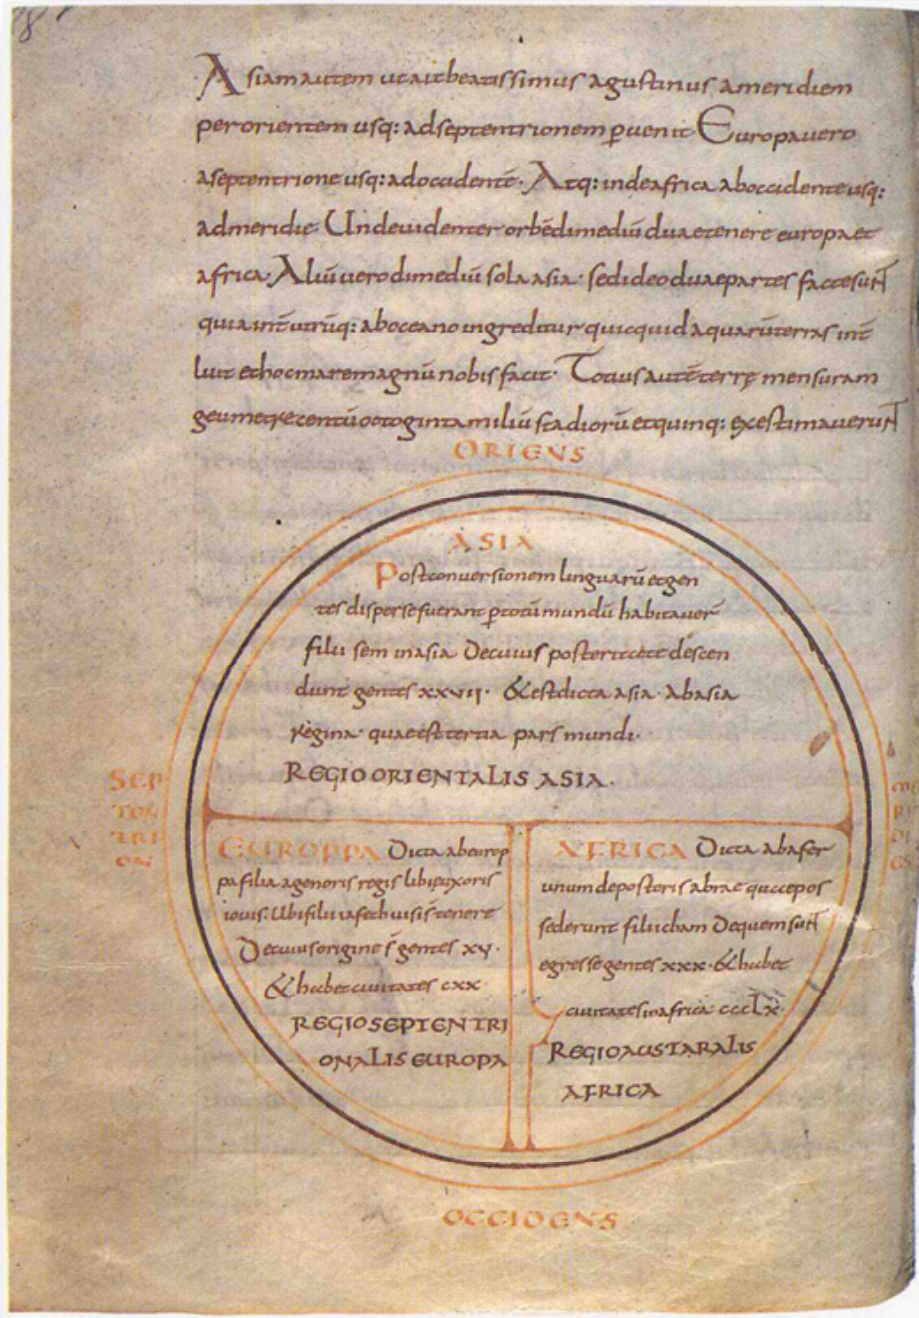 Asiam autem ut ait beatissimus agustinus a meridiem
per orientem usq: ad septentrionem ꝑvenit. Europa vero
a septentrione usq: ad occidentē. Atq: inde africa ab occidente usq:
ad meridiē. Unde videnter orbē dimediū duae tenere europa et
africa. Aliū vero dimediū sola asia. sed ideo duae partes facte sunt
quia int̄ utrūq: ab oceano ingreditur quicquid aquarū terras int̄
luit et hoc mare magnū nobis facit. Totius autē terrę mensuram
geumetre centū octoginta miliū stadiorū et quinq: exestimaverunt
ORIENS
ASIA
Post conversionem linguarū et gen
tes disperse fuerant ꝑ totū mundū habitaver̄
filii sem in asia De cuius posteritate descen
dunt gentes xxvii. & est dicta asia. Ab asia
regina. quae est tertia pars mundi.
REGIO ORIENTALIS ASIA.
SEP
TEN
TRI
ON
EUROPPA Dicta ab europ
pa filia agenoris regis libie uxoris
iovis. Ubi filii iafeth visi s̄ tenere
De cuius origine s̄ gentes xv.
& habet civitates cxx
REGIO SEPTENTRI
ONALIS EUROPA
AFRICA Dicta ab afer
unum de posteris abrae qui
sederunt filii cham De quem sunt
egresse gentes xxx. & habet
civitates in africa. ccclx.
REGIO AUSTARALIS
AFRICA
OCCIDENS